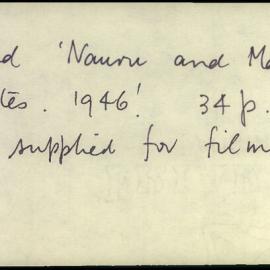 d 'Nauru and Ma
tes. 1946'. 34 p.
supplied for film